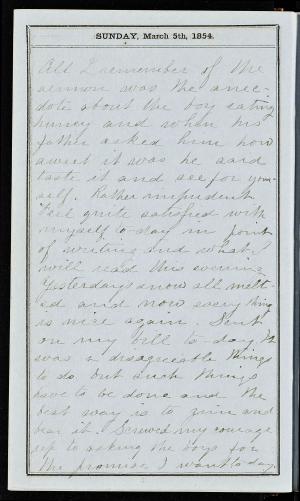 SUNDAY, March 5th, 1854.
All I remember of the
sermon was the anec-
dote about the boy eating
honey and when his
father asked him how
sweet it was he said
taste it and see for your-
self. Rather impudent
Feel quite satisfied with
myself to-day in point
of writing and what I
will read this evening.
Yesterdays snow all melt-
ed and now every thing
is nice again. Sent
on my bill to-day. It
was a disagreeable things
to do but such things
have to be done and the
best way is to grin and
bear it. Screwed my courage
up to asking the boys for
the promise I want to-day